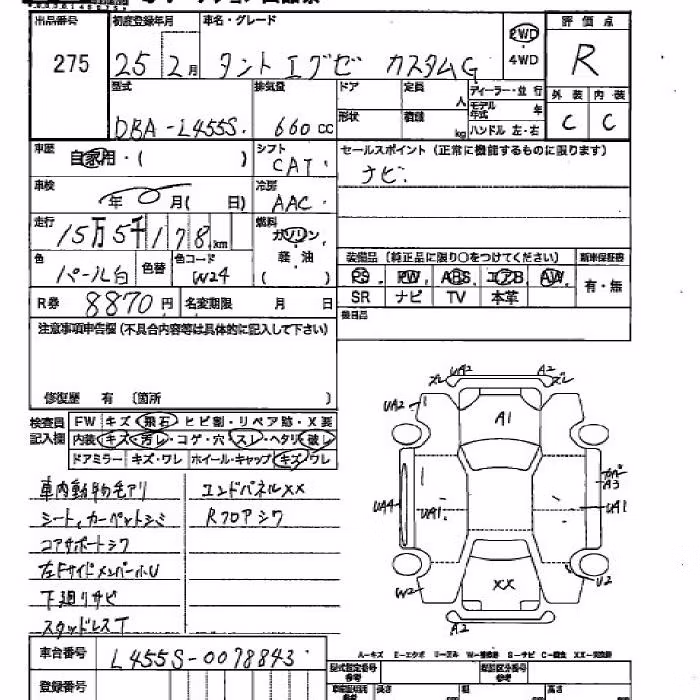 出品番号 初度登録年月 車名・グレード 評価点
275 25 2月 タント エグゼ カスタムG 2WD・4WD R
型式 排気量 ドア 定員 人 ディーラー・並行 外装 内装
DBA-L455S. 660cc 形状 積載 kg モデル年式 年 ハンドル 左・右 C C
車歴 自家用・( ) シフト CAT. セールスポイント (正常に機能するものに限ります)
車検 年 月( 日) 冷房 AAC. ナビ.
走行 15万5千178km 燃料 ガソリン・軽油( )
色 パール白 色替 色コード W24 装備品 (純正品に限り○をつけてください) 新車保証書
PS. PW. ABS. エアB AW. 有・無
R券 8870円 名変期限 月 日 SR ナビ TV 本革
注意事項申告欄 (不具合内容等は具体的に記入して下さい) 後日品
修復歴 有 [箇所 ]
検査員記入欄 FW キズ・飛石・ヒビ割・リペア跡・X要
内装・キズ・汚レ・コゲ・穴・スレ・ヘタリ・破レ
ドアミラー キズ・ワレ ホイール・キャップ キズ・ワレ
車内動物毛アリ エンドパネルXX
シート,カーペットシミ Rフロアシワ
コアサポートシワ
左Fサイドメンバー小U
下廻りサビ
スタッドレスT
ズレ UA2 A2 ズレ
UA2 A1
UA4 UA1. A3 UA1
W2 XX U2
A2
A-キズ E-エクボ U-凹ミ W-補修跡 S-サビ C-腐食 XX-交換済
車台番号 L455S-0078843.
登録番号 型式指定番号 参考 類別区分番号 参考
長さ 幅 高さ